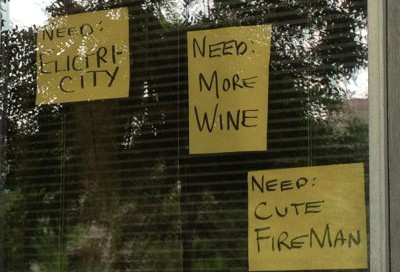 NEED:
ELICTRI-
CITY
NEED:
MORE
WINE
NEED:
CUTE
FIREMAN